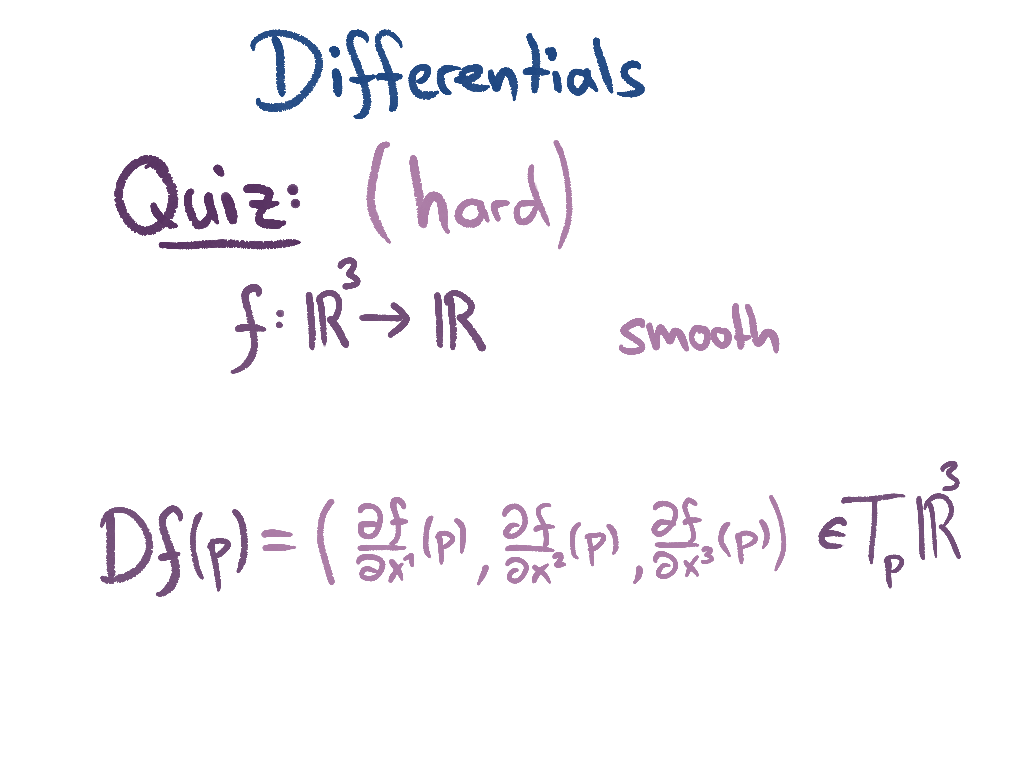 Differentials
Quiz: (hard)
f: ℝ³ → ℝ smooth
Df(p) = ( ∂f/∂x¹ (p), ∂f/∂x² (p), ∂f/∂x³ (p) ) ∈ Tₚℝ³